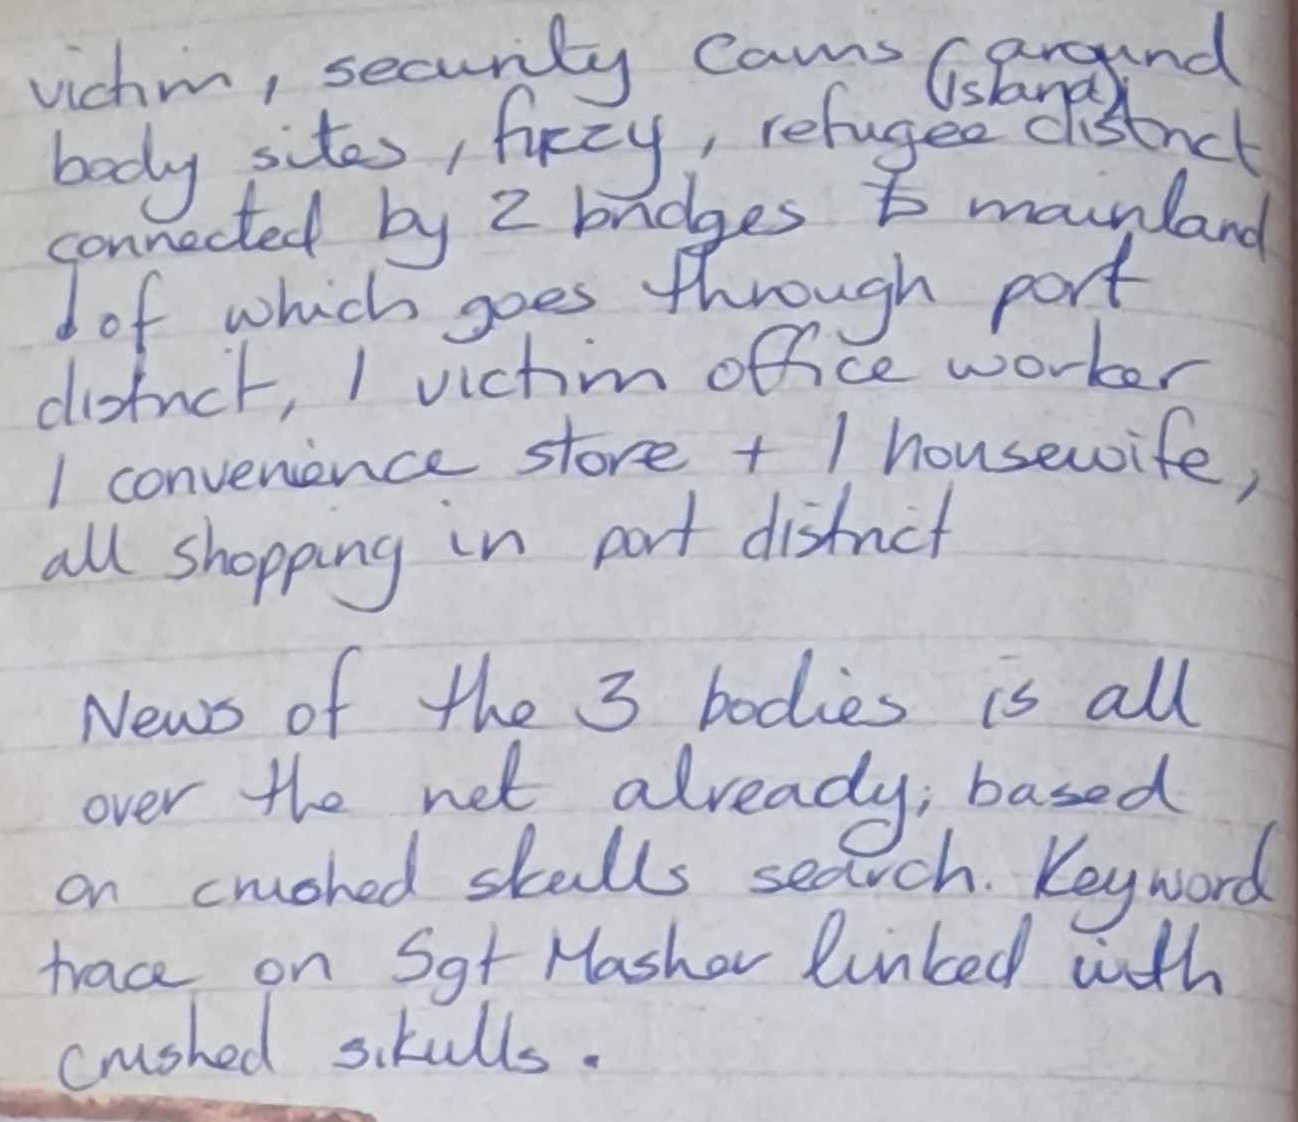 victim, security cams around
(island)
body sites, fuzzy, refugee district
connected by 2 bridges to mainland
1 of which goes through port
district, 1 victim office worker
1 convenience store + 1 housewife,
all shopping in port district
News of the 3 bodies is all
over the net already, based
on crushed skulls search. Keyword
trace on Sgt Masher linked with
crushed skulls.